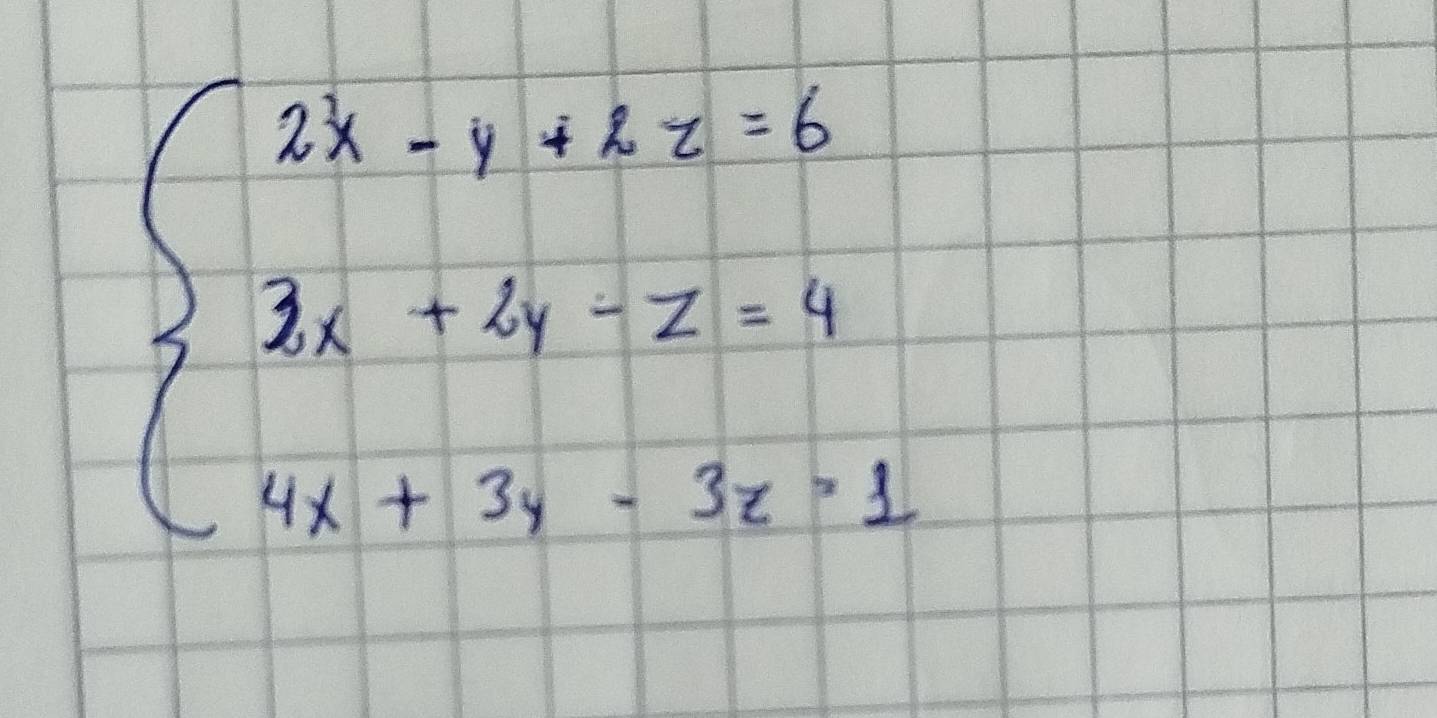 2x - y + 2z = 6
3x + 2y - z = 4
4x + 3y - 3z = 1